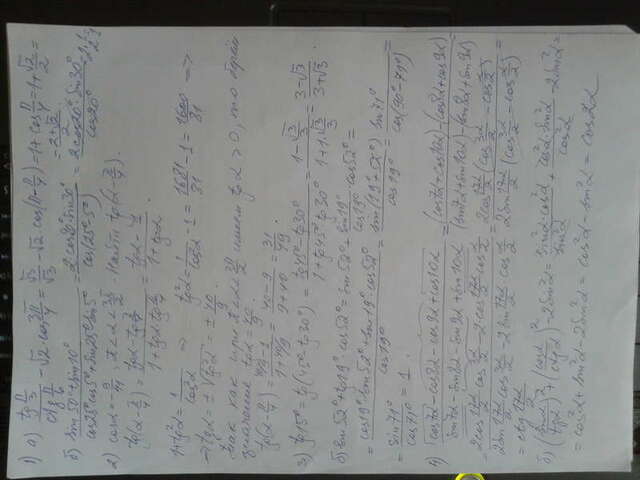 1) а) tg π/3 / ctg π/6 − √2 cos 3π/4 = √3/√3 − √2 cos(π − π/4) = 1 + cos π/4 = 1 + √2/2 =
= (2+√2)/2
б) (sin 50° + sin 10°) / (cos 25° cos 5° + sin 25° sin 5°) = 2 cos 20° · sin 30° / cos(25° − 5°) = 2 cos 20° · sin 30° / cos 20° = 2 · 1/2
2) cos α = −9/41, π < α < 3π/2 − Найти tg(α − π/4).
tg(α − π/4) = (tg α − tg π/4) / (1 + tg α tg π/4) = (tg α − 1) / (1 + tg α)
1 + tg²α = 1/cos²α ⇒ tg²α = 1/cos²α − 1 = 1681/81 − 1 = 1600/81 ⇒
⇒ tg α = ± √tg²α = ± 40/9.
так как при π < α < 3π/2 имеем tg α > 0, то берём
значение tg α = 40/9
tg(α − π/4) = (40/9 − 1) / (1 + 40/9) = (40 − 9) / (9 + 40) = 31/49.
3) tg 15° = tg(45° − 30°) = (tg 45° − tg 30°) / (1 + tg 45° tg 30°) = (1 − √3/3) / (1 + 1·√3/3) = (3 − √3) / (3 + √3).
б) sin 52° + tg 19° · cos 52° = sin 52° + sin 19° / cos 19° · cos 52° =
= (cos 19° · sin 52° + sin 19° cos 52°) / cos 19° = sin(19° + 52°) / cos 19° = sin 71° / cos(90° − 71°) =
= sin 71° / cos 19° = 1.
4) (cos 7α − cos 8α − cos 9α + cos 10α) / (sin 7α − sin 8α − sin 9α + sin 10α) = ((cos 7α + cos 10α) − (cos 8α + cos 9α)) / ((sin 7α + sin 10α) − (sin 8α + sin 9α)) =
= (2 cos 17α/2 cos 3α/2 − 2 cos 17α/2 cos α/2) / (2 sin 17α/2 cos 3α/2 − 2 sin 17α/2 cos α/2) = 2 cos 17α/2 (cos 3α/2 − cos α/2) / 2 sin 17α/2 (cos 3α/2 − cos α/2) =
= ctg 17α/2
б) (sin α / tg α)² + (cos α / ctg α)² − 2 sin²α = sin²α · cos²α / sin²α + cos²α · sin²α / cos²α − 2 sin²α =
= cos²α + sin²α − 2 sin²α = cos²α − sin²α = cos 2α